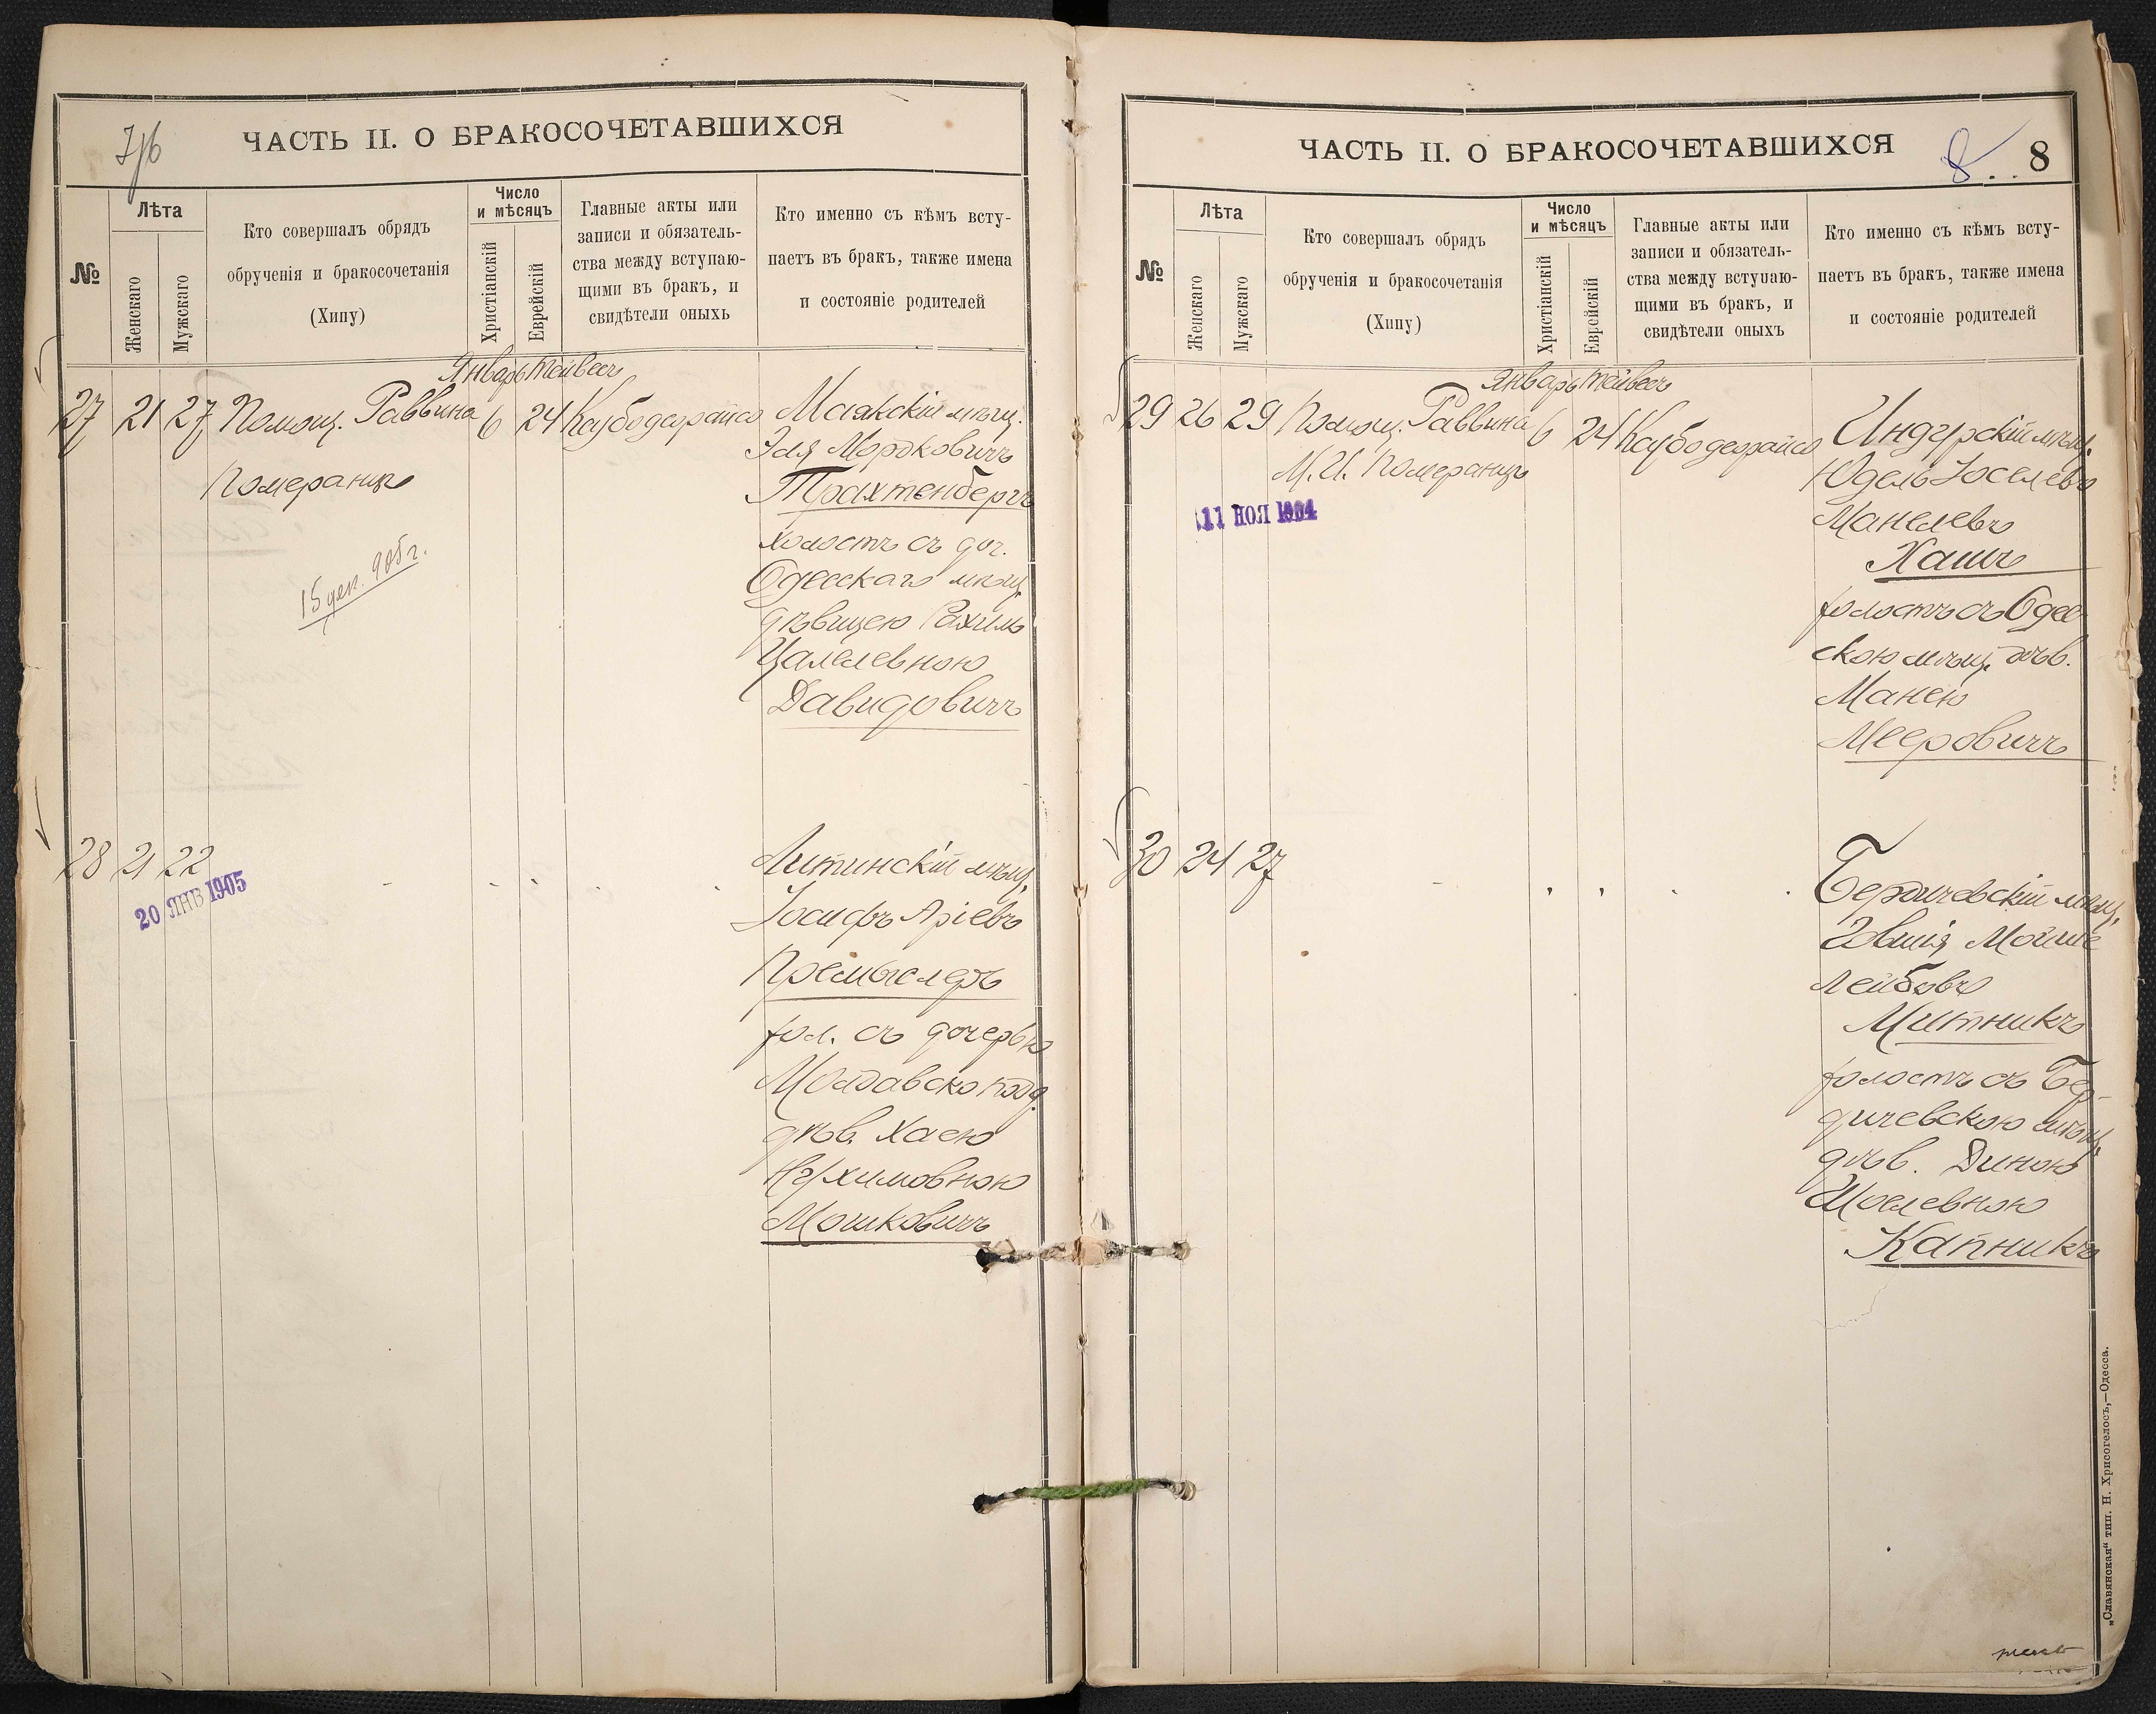 7/б
ЧАСТЬ II. О БРАКОСОЧЕТАВШИХСЯ
№
Лѣта
Женскаго
Мужскаго
Кто совершалъ обрядъ
обрученія и бракосочетанія
(Хипу)
Число
и мѣсяцъ
Христіанскій
Еврейскій
Главные акты или
записи и обязатель-
ства между вступаю-
щими въ бракъ, и
свидѣтели оныхъ
Кто именно съ кѣмъ всту-
паетъ въ бракъ, также имена
и состояніе родителей
Январь Тейвесъ
27 21 27 Помощ. Раввина 6 24 Маякскій мѣщ.
Померанцъ
Эля Мордковичъ
Трахтенбергъ
холостъ съ доч.
Одесскаго мѣщ.
дѣвицею Рахиль
Цалелевною
Давидовичъ
15 дек. 905 г.
28 21 22 Литинскій мѣщ.
20 ЯНВ 1905
Іосифъ Аріевъ
Премыслеръ
хол. съ дочерью
Молдавско подд.
дѣв. Хаею
Нухимовною
Мошковичъ
ЧАСТЬ II. О БРАКОСОЧЕТАВШИХСЯ
8 8
№
Лѣта
Женскаго
Мужскаго
Кто совершалъ обрядъ
обрученія и бракосочетанія
(Хипу)
Число
и мѣсяцъ
Христіанскій
Еврейскій
Главные акты или
записи и обязатель-
ства между вступаю-
щими въ бракъ, и
свидѣтели оныхъ
Кто именно съ кѣмъ всту-
паетъ въ бракъ, также имена
и состояніе родителей
Январь Тейвесъ
29 26 29 Помощ. Раввина 6 24 Индурскій мѣщ.
М. И. Померанцъ
11 НОЯ 1904
Юдель Іоселевъ
Манелевъ
Хашъ
холостъ съ Одес
скою мѣщ. дѣв.
Манею
Мееровичъ
30 24 27 Бердичевскій мѣщ.
Мойше
Лейбовъ
Митникъ
холостъ съ Бер-
дичевскою мѣщ.
дѣв. Диною
Шоелевною
Капникъ
„Славянская“ тип. Н. Хрисогелосъ,—Одесса.